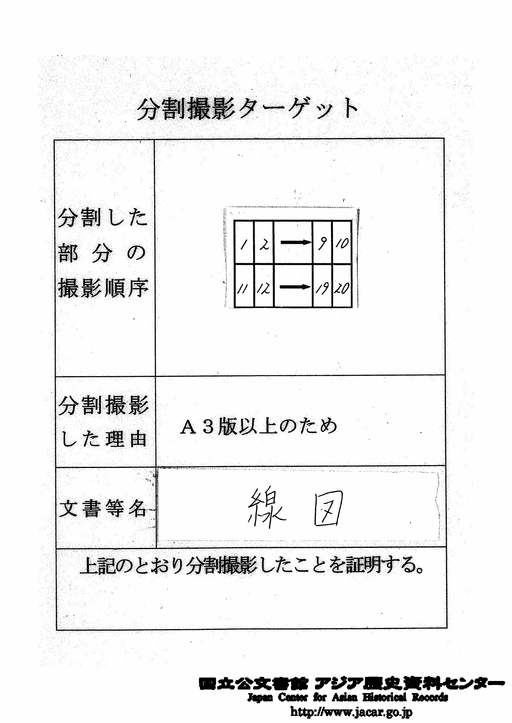 分割撮影ターゲット
分割した
部分の
撮影順序
1 2 → 9 10
11 12 → 19 20
分割撮影
した理由
A3版以上のため
文書等名
線図
上記のとおり分割撮影したことを証明する。
国立公文書館 アジア歴史資料センター
Japan Center for Asian Historical Records
http://www.jacar.go.jp